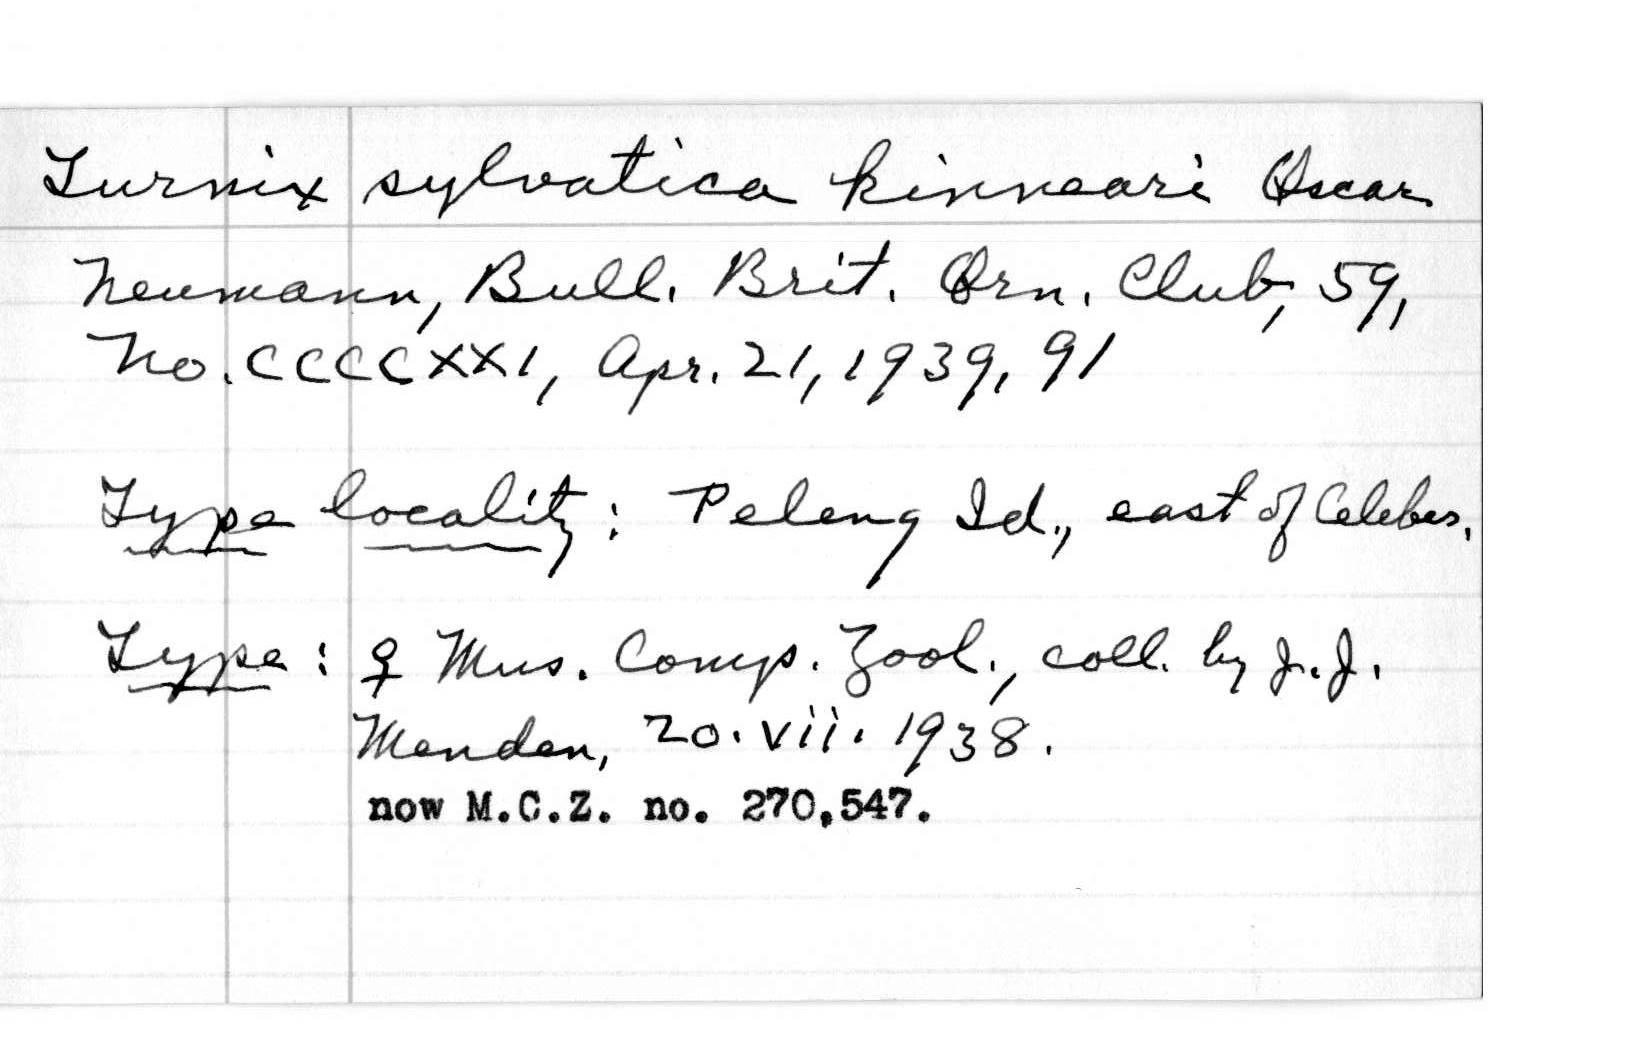 Turnix sylvatica kinneari Oscar
Neumann, Bull. Brit. Orn. Club, 59,
No. CCCCXXI, Apr. 21, 1939, 91
Type locality: Peleng Id., east of Celebes.
Type: ♀ Mus. Comp. Zool., coll. by J. J.
Menden, 20. vii. 1938.
now M.C.Z. no. 270,547.